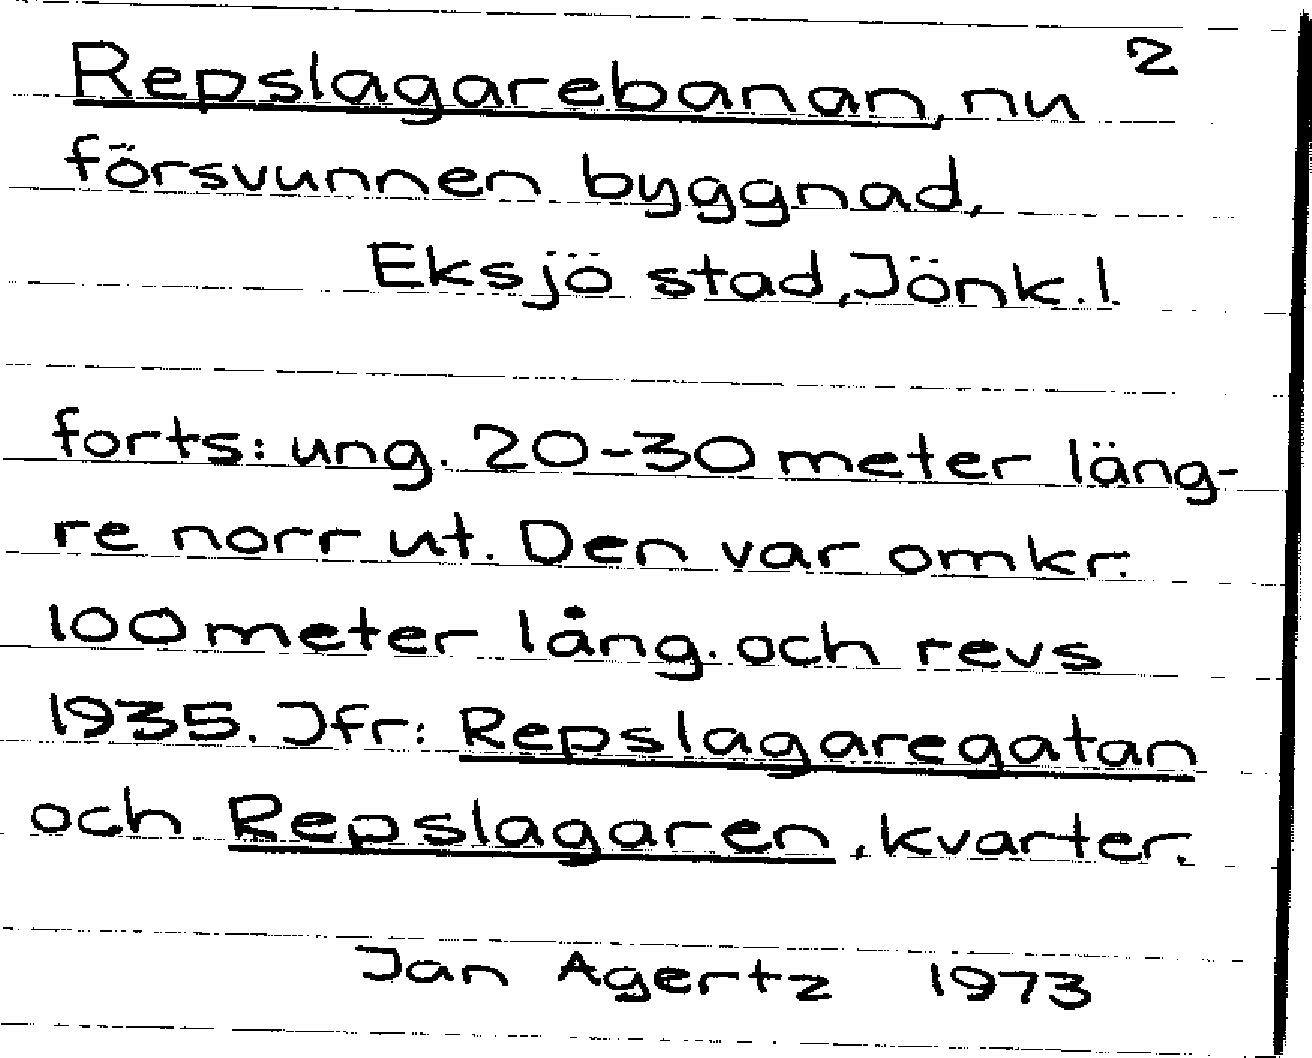 2
Repslagarebanan, nu
försvunnen byggnad,
Eksjö stad, Jönk. l.
forts: ung. 20-30 meter läng-
re norr ut. Den var omkr.
100 meter lång. och revs
1935. Jfr: Repslagaregatan
och Repslagaren, kvarter.
Jan Agertz 1973